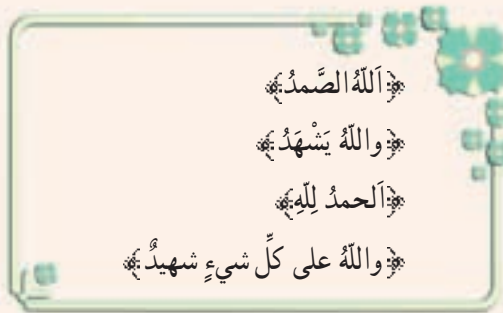 ﴿اَللّٰهُ الصَّمدُ﴾
﴿واللّٰهُ يَشْهَدُ﴾
﴿اَلحمدُ لِلّٰهِ﴾
﴿واللّٰهُ على كلِّ شيءٍ شهيدٌ﴾